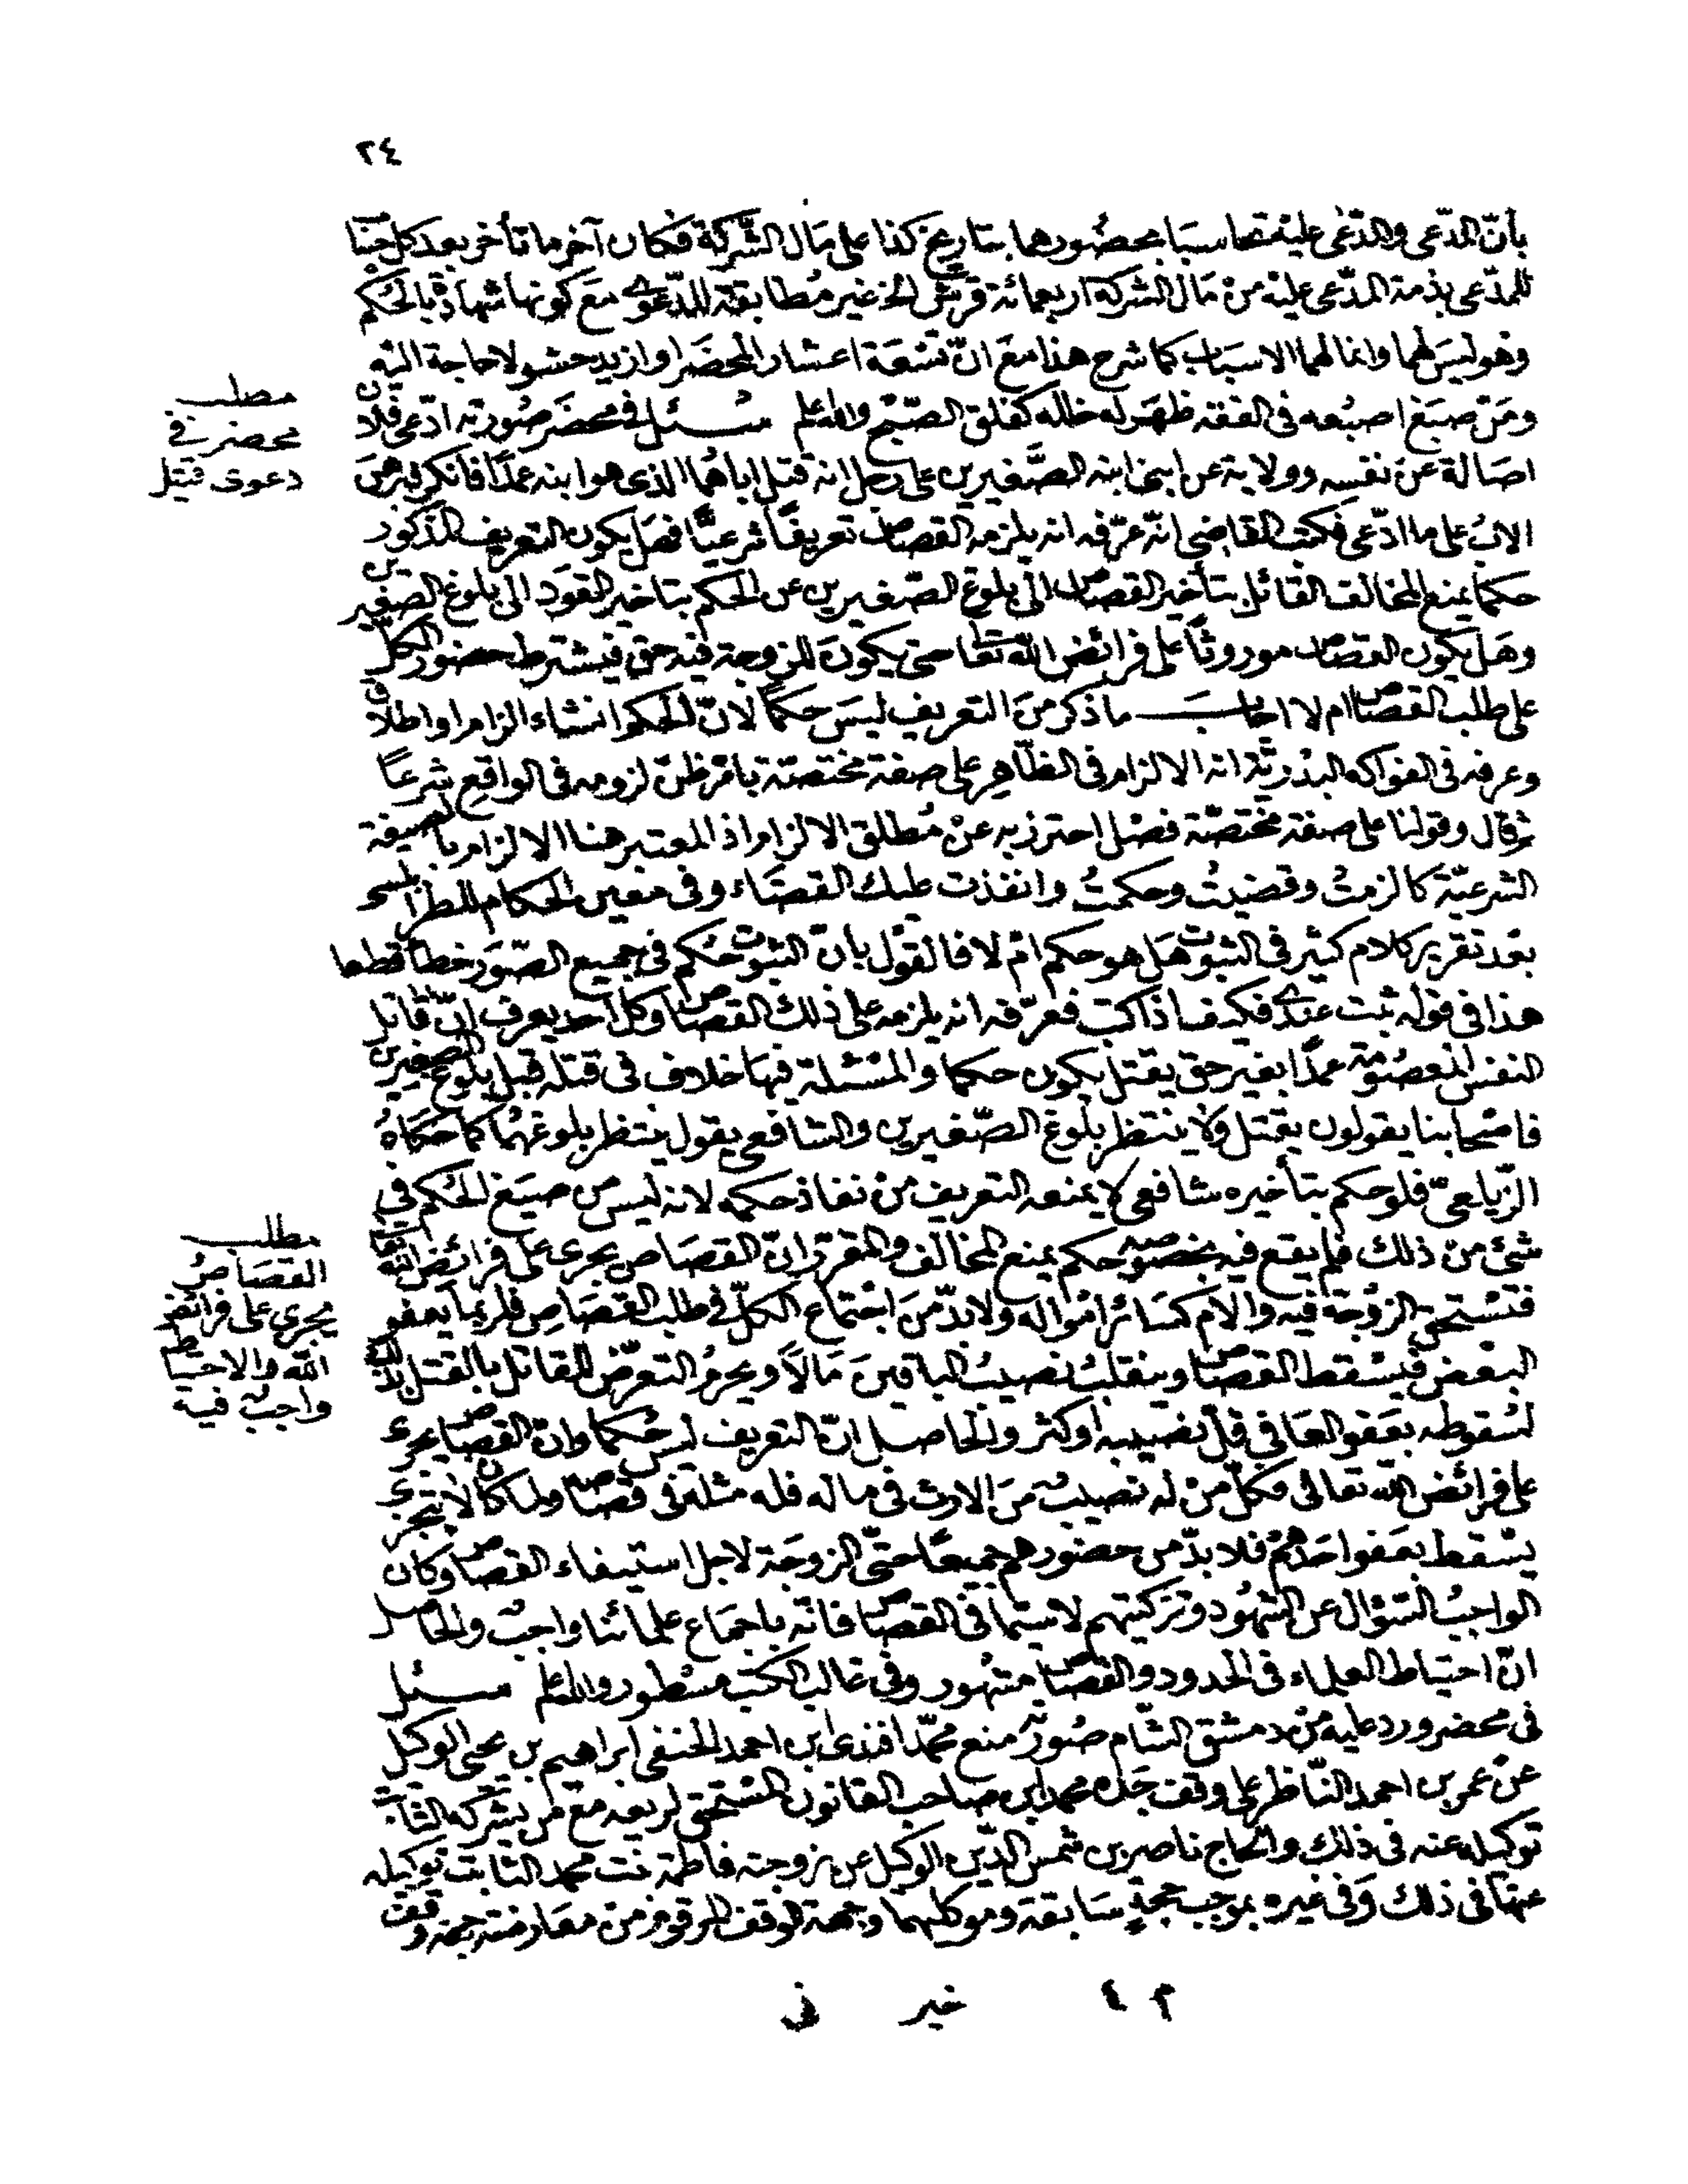 ٢٤
بأنّ المدّعى والمدّعى عليه تحاسبا بحضورهما بتاريخ كذا على مال الشّركة فكان آخر ما تأخر بعد كل حساب
للمدّعى بذمة المدّعى عليه من مال الشركة اربعمائة قرش الخ غير مطابقة للدّعوى مع كونها شهادة بالحكم
وهو ليس لهما وانما لهما الاسباب كما شرح هذا مع انّ تسعة اعشار المحضر او ازيد حشو لا حاجة اليه
ومن صبغ اصبعه فى الفقه ظهر له خلله كفلق الصّبح والله اعلم سئل فى محضر صورته ادّعى فلان
مطلب
محضر في
دعوى قتيل
اصالة عن نفسه وولاية عن ابنى ابنه الصّغيرين على رجل انه قتل اباهما الذى هو ابنه عمدًا فانكر فبرهن
الاب على ما ادّعى فكتب القاضى انّه عرّفه انه يلزمه القصاص تعريفًا شرعيًّا فهل يكون التعريف المذكور
حكما يمنع المخالف القائل بتأخير القصاص الى بلوغ الصّغيرين عن الحكم بتاخير القود الى بلوغ الصغيرين
وهل يكون القصاص موروثاً على فرائض الله تعالى حتى يكون للزوجة فيه حق فيشترط حضور الكلّ
على طلب القصاص ام لا اجاب ما ذكر من التعريف ليس حكمًا لانّ الحكم انشاء الزام او اطلاق
وعرفه فى الفواكه البدريّة انه الالزام فى الظّاهر على صفة مختصّة بامر ظنّ لزومه فى الواقع شرعًا
ثم قال وقولنا على صفة مختصّة فصل احترز به عن مطلق الالزام اذ المعتبر هنا الالزام بالصيغة
الشرعيّة كالزمتُ وقضيتُ وحكمتُ وانفذت عليك القضاء وفى معين الحكام للطرابلسى
بعد تقرير كلام كثير فى الثبوت هل هو حكم ام لا فالقول بانّ الثبوت حكم فى جميع الصّور خطأ قطعا
هذا فى قوله ثبت عندى فكيف اذا كتب فعرّفه انه يلزمه على ذلك القصاص وكل احد يعرف انّ قاتل
النفس المعصومة عمدًا بغير حق يقتل يكون حكما والمسئلة فيها خلاف فى قتله قبل بلوغ الصغيرين
فاصحابنا يقولون يقتل ولا ينتظر بلوغ الصّغيرين والشافعى يقول ينتظر بلوغهما كما حكاه
الزّيلعىّ فلو حكم بتأخيره شافعى لا يمنعه التعريف من نفاذ حكمه لانه ليس من صيغ الحكم فى
شئ من ذلك فلم يقع فيه بخصوصه حكم يمنع المخالف والمقرّر انّ القصاص يجرى على فرائض الله تعالى
مطلب
القصاص
يجرى على فرائض
الله والاحتياط
واجب فيه
فتستحق الزوجة فيه والام كسائر امواله ولا بدّ من اجتماع الكلّ فى طلب القصاص فلربما يعفو
البعض فيسقط القصاص وينقلب نصيب الباقين مالاً ويحرم التعرّض للقاتل بالقتل
لسقوطه بعفو العافى قلّ نصيبه او كثر والحاصل انّ التعريف ليس حكما وانّ القصاص يجرى
على فرائض الله تعالى فكلّ من له نصيب من الارث فى ماله فله مثله فى قصاصه ولما كان لا يتجزى
يسقط بعفو احدهم فلا بدّ من حضورهم جميعًا حتّى الزوجة لاجل استيفاء القصاص وكان
الواجب السّؤال عن الشهود وتزكيتهم لا سيّما فى القصاص فانّه باجماع علمائنا واجب والحاصل
انّ احتياط العلماء فى الحدود والقصاص مشهور وفى غالب الكتب مسطور والله اعلم سئل
فى محضر ورد عليه من دمشق الشّام صورته منع محمّد افندى ابن احمد الحنفى ابراهيم بن يحيى الوكيل
عن عمر بن احمد النّاظر على وقف جدّه محمد ابن صاحب القانون المستحق لريعه مع من يشركه الثابت
توكيله عنه فى ذلك والحاج ناصر بن شمس الدّين الوكيل عن زوجته فاطمة بنت محمد الثابت توكيله
عنها فى ذلك وفى غيره بموجب حجةٍ سابقة وموكليهما وجهة الوقف المرقوم من معارضته جهة وقف
٢ ٤ خير فى